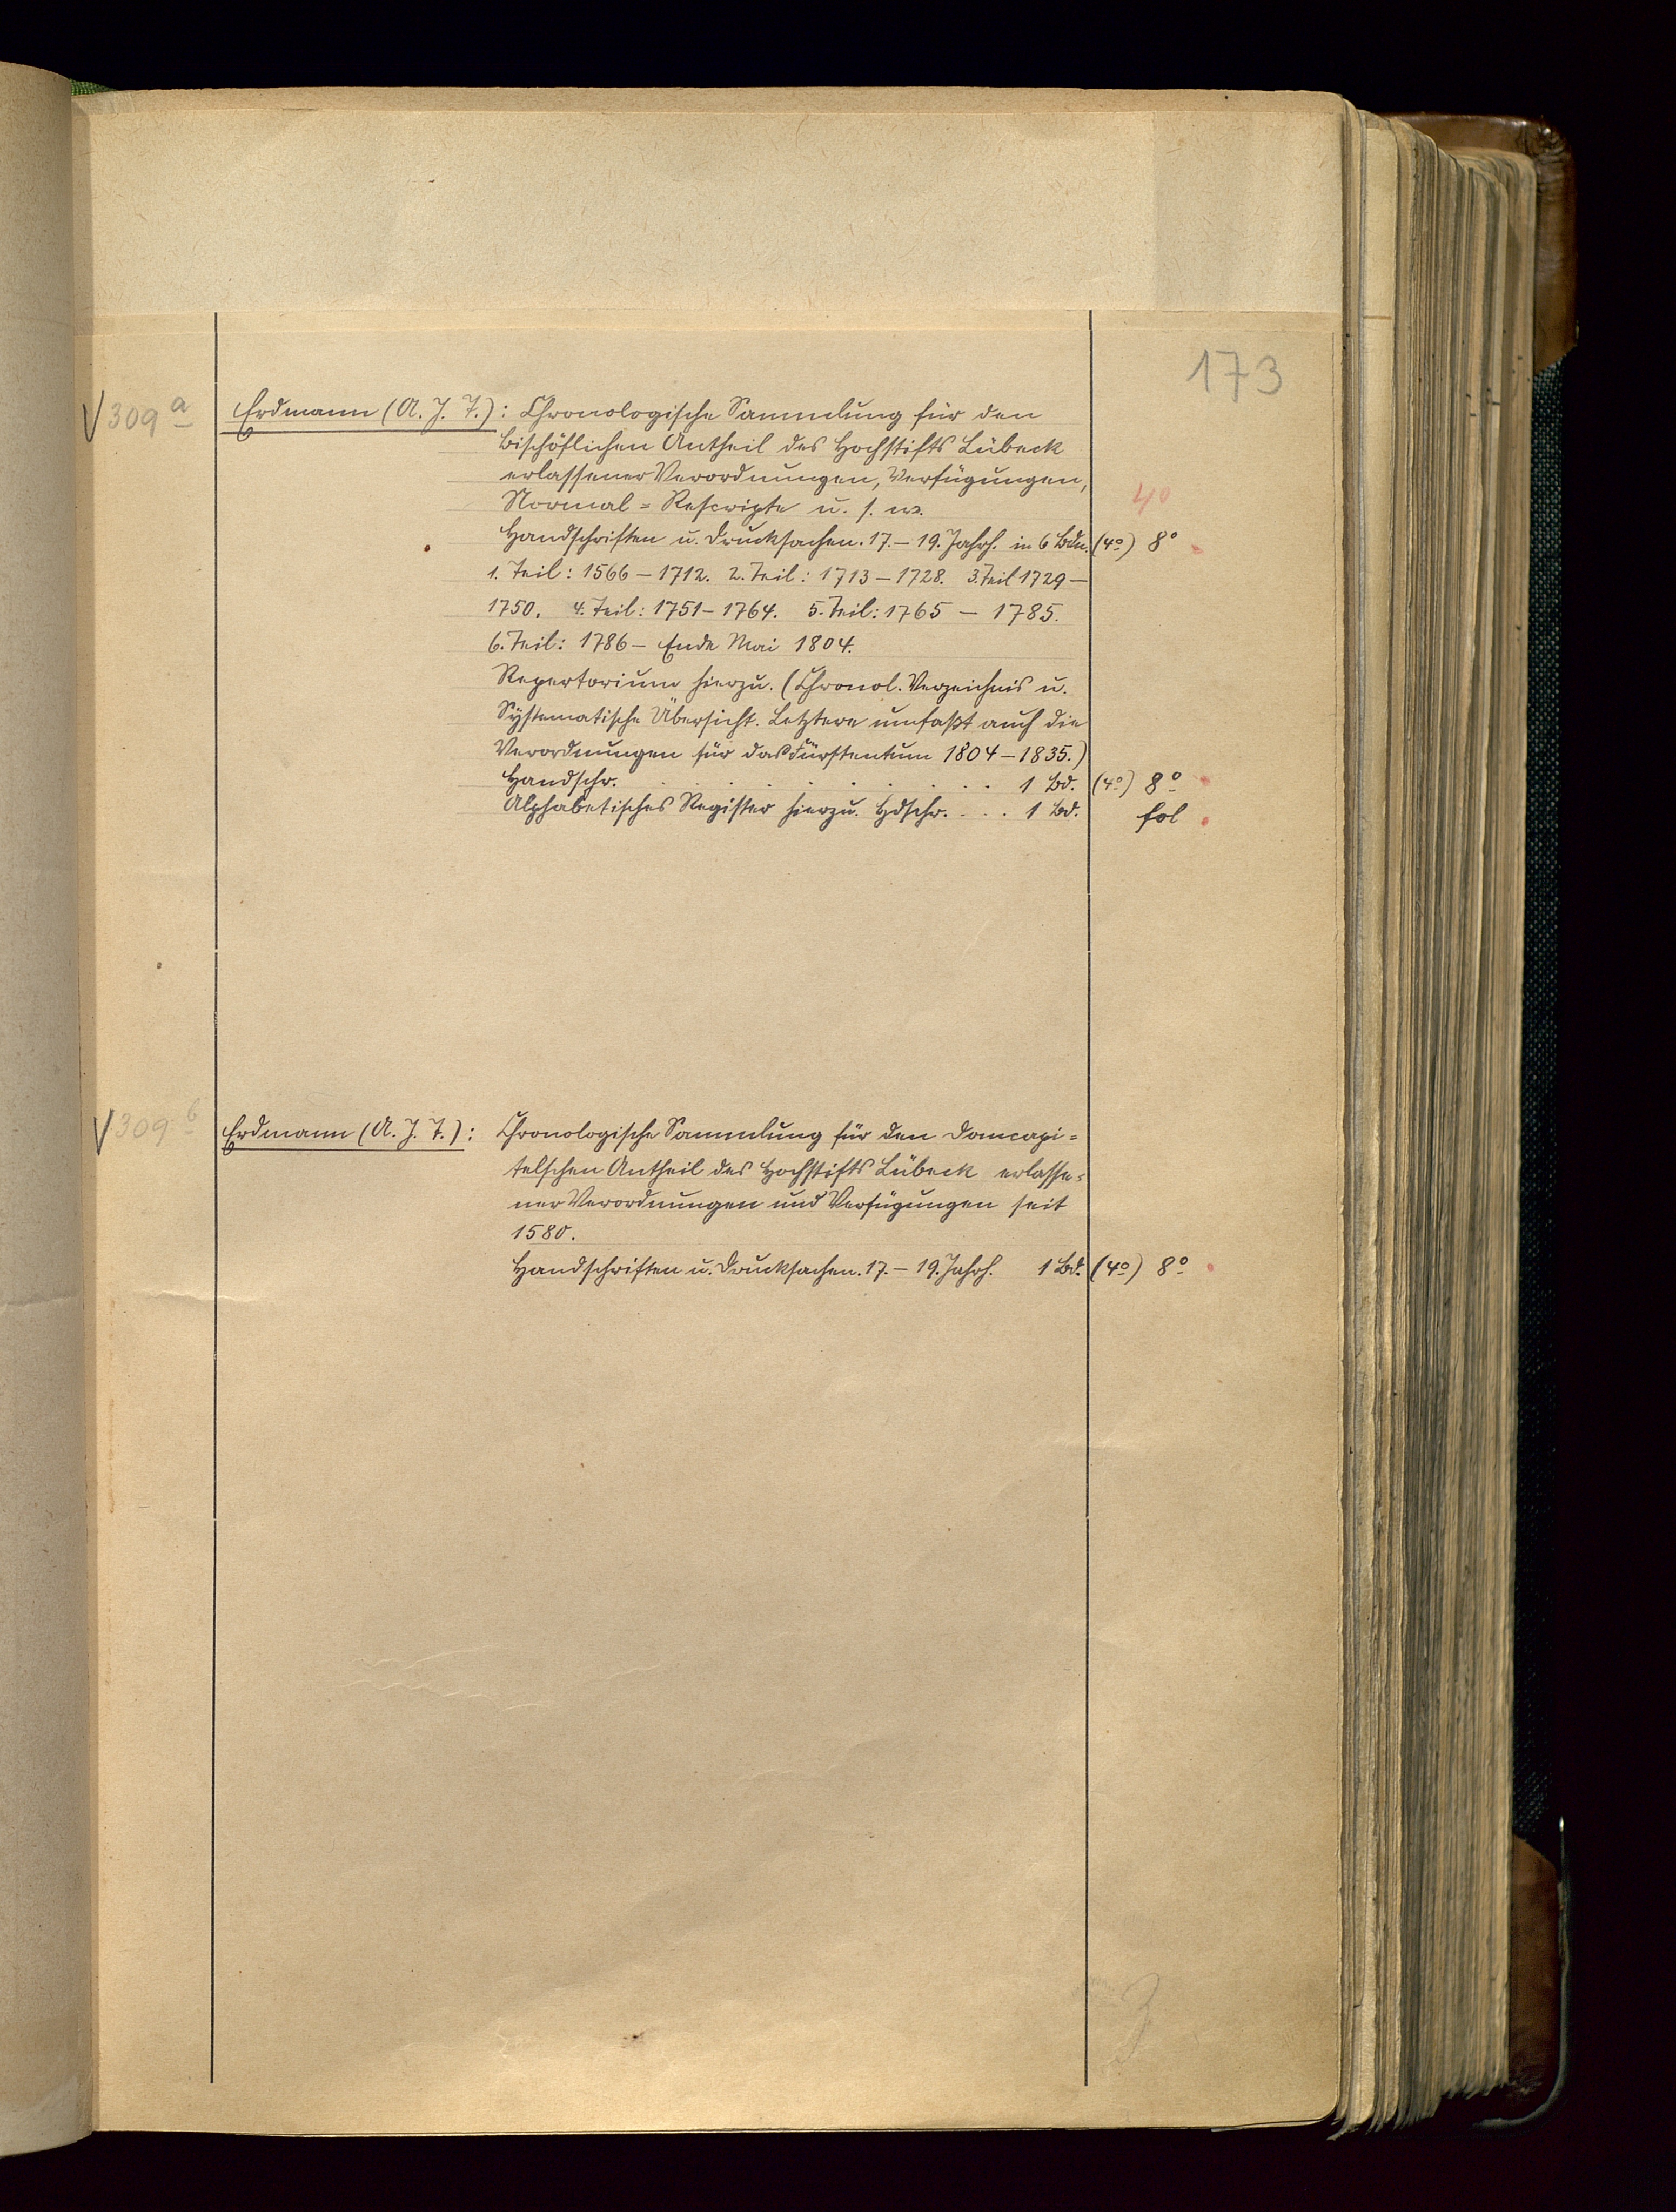 173
V 309 a Erdmann (A. J. F.): Chronologische Sammlung für den
Bischöflichen Antheil des Hochstifts Lübeck
erlassener Verordnungen, Verfügungen,
Normal=Rescripte u. s. w.
40
Handschriften u. Drucksachen. 17.–19. Jahrh. in 6 Bdn. (4o) 8o
1. Teil: 1566–1712. 2. Teil: 1713–1728. 3. Teil 1729–
1750. 4. Teil: 1751–1764. 5. Teil: 1765–1785.
6. Teil: 1786– Ende Mai 1804.
Repertorium hierzu. (Chronol. Verzeichnis u.
Systematische Übersicht. Letztere umfaßt auch die
Verordnungen für das Fürstentum 1804–1835.)
Handschr. . . . . . . . . 1 Bd. (4o) 8o
Alphabetisches Register hierzu. Hdschr. . . . 1 Bd. fol
V 309 b Erdmann (A. J. F.): Chronologische Sammlung für den Domcapi=
telschen Antheil des Hochstifts Lübeck erlasse=
ner Verordnungen und Verfügungen seit
1580.
Handschriften u. Drucksachen. 17.–19. Jahrh. 1 Bd. (4o) 8o